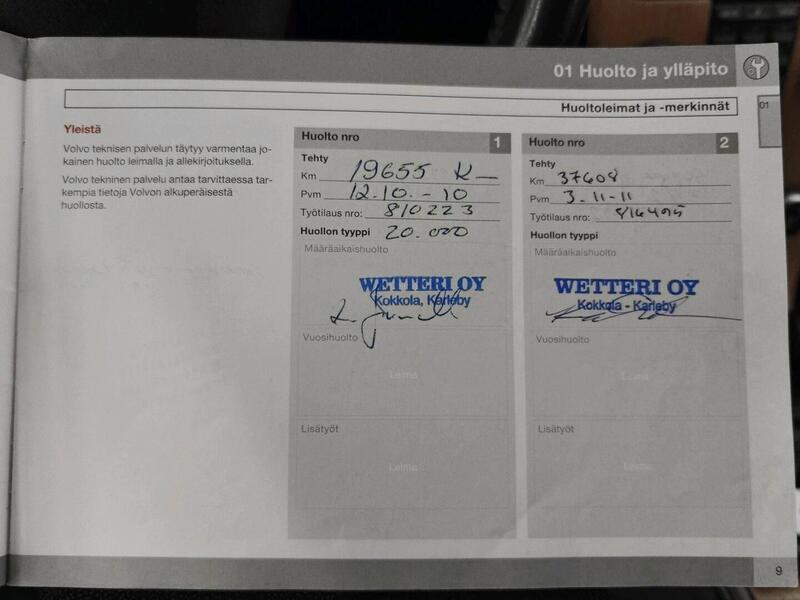 01 Huolto ja ylläpito
Huoltoleimat ja -merkinnät
01
Yleistä
Volvo teknisen palvelun täytyy varmentaa jo-
kainen huolto leimalla ja allekirjoituksella.
Volvo tekninen palvelu antaa tarvittaessa tar-
kempia tietoja Volvon alkuperäisestä
huollosta.
Huolto nro 1
Tehty
Km 19655
Pvm 12.10.-10
Työtilaus nro: 810223
Huollon tyyppi 20.000
Määräaikaishuolto
WETTERI OY
Kokkola, Karleby
Vuosihuolto
Leima
Lisätyöt
Leima
Huolto nro 2
Tehty
Km 37608
Pvm 3.11-11
Työtilaus nro: 816495
Huollon tyyppi
Määräaikaishuolto
WETTERI OY
Kokkola - Karleby
Vuosihuolto
Leima
Lisätyöt
Leima
9